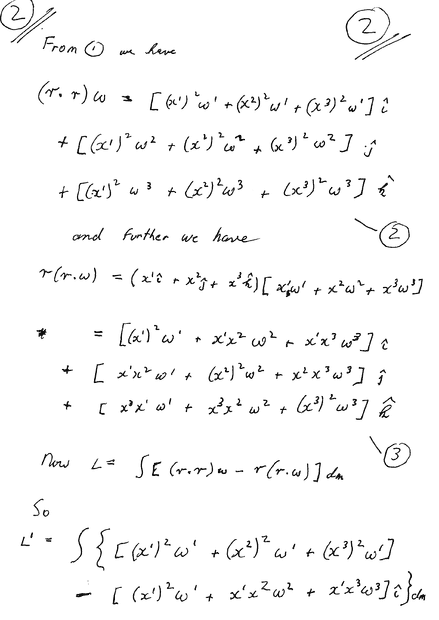 2 2
From ① we have
(r.r)ω = [(x¹)²ω¹ + (x²)²ω¹ + (x³)²ω¹] î
+ [(x¹)²ω² + (x²)²ω² + (x³)²ω²] ĵ
+ [(x¹)²ω³ + (x²)²ω³ + (x³)²ω³] k̂
②
and further we have
r(r.ω) = (x¹î + x²ĵ + x³k̂)[x¹ω¹ + x²ω² + x³ω³]
= [(x¹)²ω¹ + x¹x²ω² + x¹x³ω³] î
+ [x¹x²ω¹ + (x²)²ω² + x²x³ω³] ĵ
+ [x³x¹ω¹ + x³x²ω² + (x³)²ω³] k̂
③
Now L = ∫[(r.r)ω − r(r.ω)]dm
So
L¹ = ∫{[(x¹)²ω¹ + (x²)²ω¹ + (x³)²ω¹]
− [(x¹)²ω¹ + x¹x²ω² + x¹x³ω³] î}dm